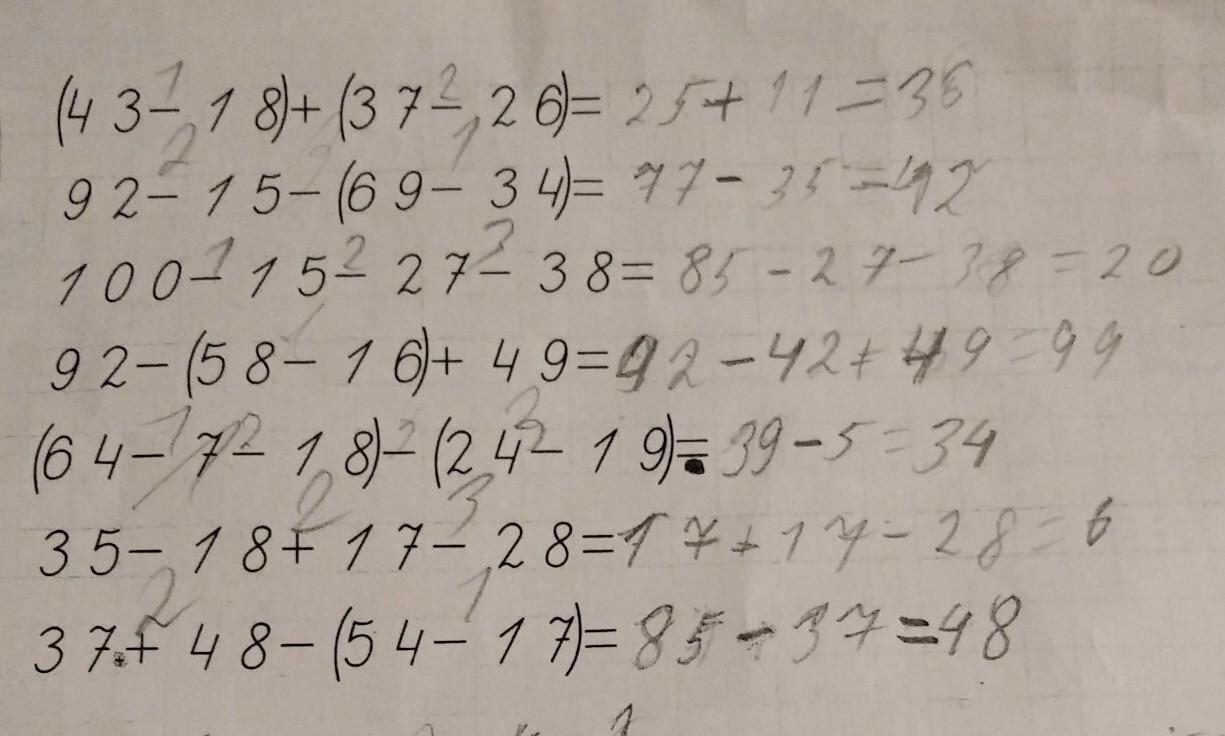 (43-18)+(37-26)=25+11=36
92-15-(69-34)=77-35=42
100-15-27-38=85-27-38=20
92-(58-16)+49=92-42+49=99
(64-7-18)-(24-19)=39-5=34
35-18+17-28=17+17-28=6
37+48-(54-17)=85-37=48